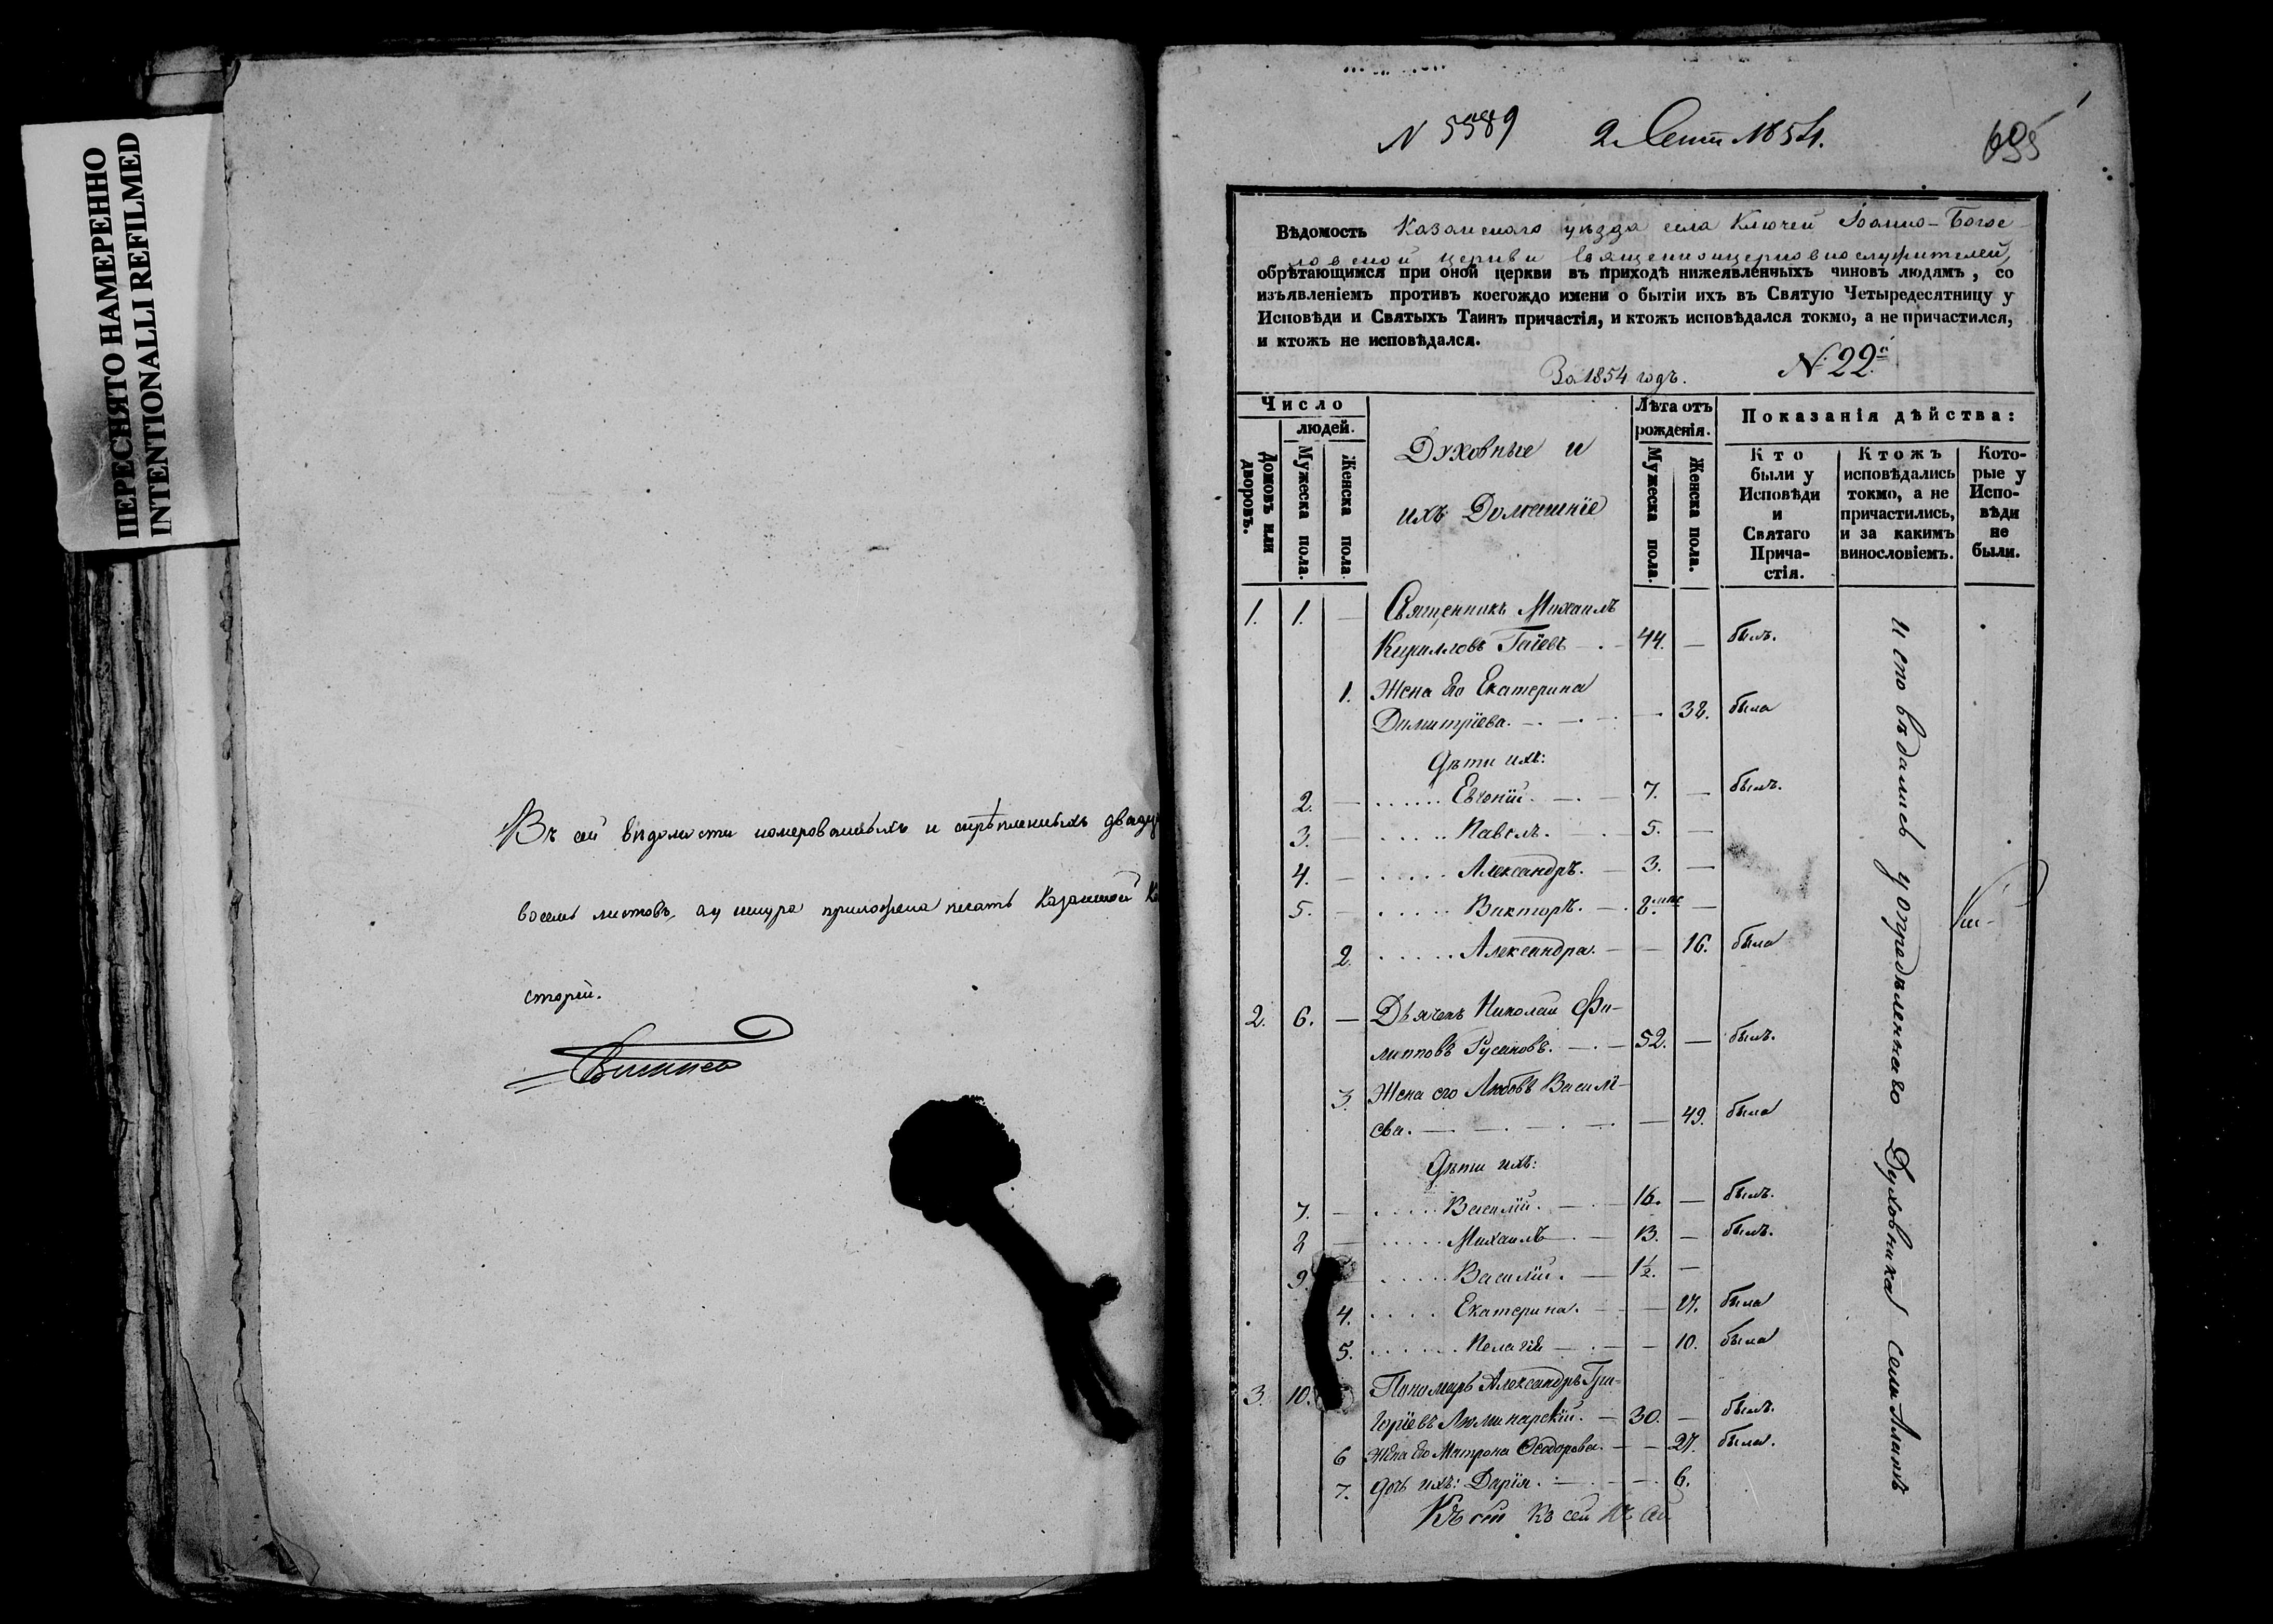 ПЕРЕСНЯТО НАМЕРЕННО
INTENTIONALLI REFILMED
Въ сей вѣдомости номерованныхъ и скрѣпленныхъ двадц
восемь листовъ, а у шнура приложена печать Казанской К
сторіи.
N 5589 2 Сент 1854.
695
1
Вѣдомость Казанскаго уѣзда села Ключей Іоанно-Богос-
ловской церкви священноцерковнослужителей,
обрѣтающимся при оной церкви въ приходѣ нижеявленныхъ чиновъ людямъ, со
изъявленіемъ противъ коегождо имени о бытіи ихъ въ Святую Четыредесятницу у
Исповѣди и Святыхъ Таинъ причастія, и ктожъ исповѣдался токмо, а не причастился,
и ктожъ не исповѣдался.
За 1854 годъ. N 22й
Число
людей.
Домовъ или дворовъ.
Мужеска пола.
Женска пола.
Духовные и
ихъ Домашніе
Лѣта отъ
рожденія.
Мужеска пола.
Женска пола.
Показанія дѣйства:
Кто
были у
Исповѣди
и
Святаго
Прича-
стія.
Ктожъ
исповѣдались
токмо, а не
причастились,
и за какимъ
винословіемъ.
Кото-
рые у
Испо-
вѣди
не
были.
1. 1. — Священникъ Михаилъ
Кирилловъ Гаіевъ — 44. — былъ.
1. Жена его Екатерина
Димитріева. — 38. была
Дѣти ихъ:
2. — Евгеній. — 7. — былъ.
3. — Павелъ. — 5. —
4. — Александръ. — 3. —
5. — Викторъ. — 8. мѣс —
2. Александра. — 16. была
2. 6. — Дьячекъ Николай Фи-
липповъ Русановъ. — 52. — былъ.
3. Жена его Любовь Василь-
ева. — 49. была
Дѣти ихъ:
7. — Василій. — 16. — былъ.
8 — Михаилъ — 13. — былъ.
9. — Василій. — 1½. —
4. Екатерина. — 17. была
5. Пелагія — 10. была
3. 10. Пономарь Александръ Гри-
горіевъ Люминарскій. — 30. — былъ.
6 Жена его Матрона Ѳеодорова. — 27. была.
7. Дочь ихъ: Дарія. — 6.
Къ сей къ сей къ сей
Исповѣдались у опредѣленнаго Духовника села